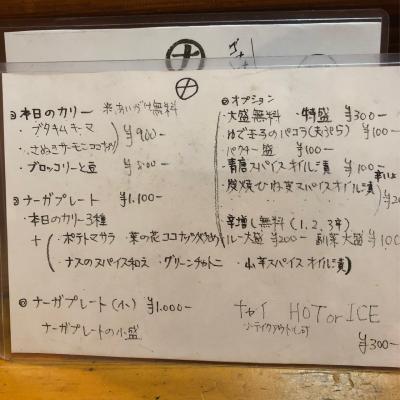 ナ
ナ
◎本日のカリー ※あいがけ無料
・ブタキムキーマ
・さぬきサーモンココナッツ
¥900-
・ブロッコリーと豆 ¥800-
◎ナーガプレート ¥1,100-
・本日のカリー3種
+
・ポテトマサラ ・菜の花ココナッツ炒め
・ナスのスパイス和え ・グリーンチャトニ ・小羊スパイスオイル漬
◎ナーガプレート(小) ¥1,000-
ナーガプレートの小盛
◎オプション
・大盛無料 ・特盛 ¥300-
・ゆで玉子のパコラ(天ぷら) ¥100-
・パクチー盛 ¥100-
・青唐スパイスオイル漬 ¥100-
・炭焼ひね
スパイスオイル漬
辛増し無料(1,2,3辛)
ルー大盛 ¥200- 副菜大盛 ¥100
チャイ HOT or ICE
¥300-